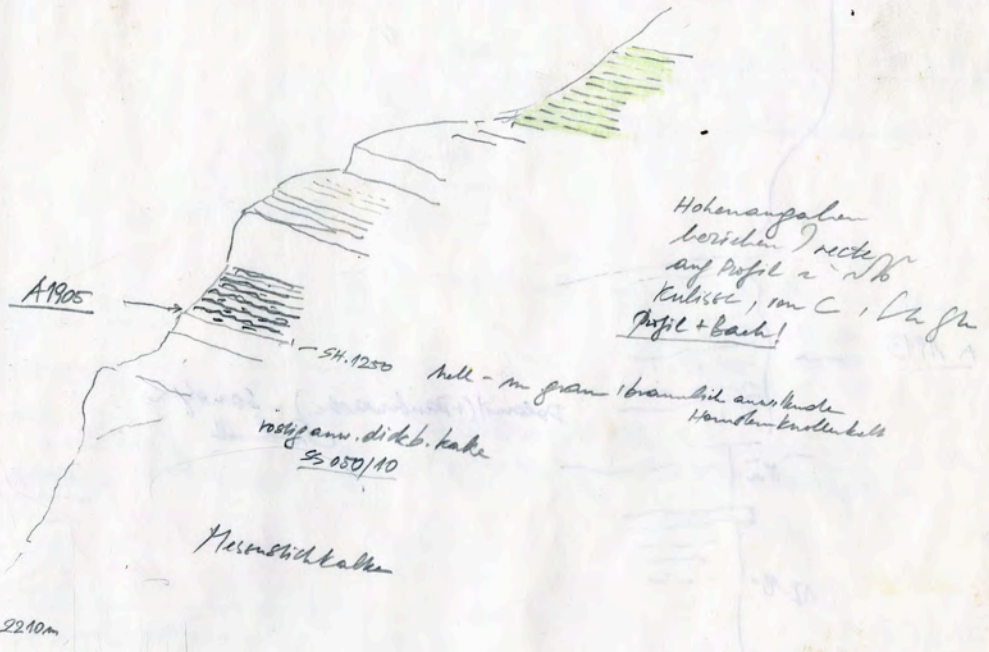 Höhenangaben
beziehen recte
auf Profil
Kulisse, von C,
Profil + Bach!
A1905
SH. 1250
hell - m grau, bräunlich anwitternde
Hornsteinknollenkalk
rostig anw. dickb. Kalke
SS 050/10
2210m